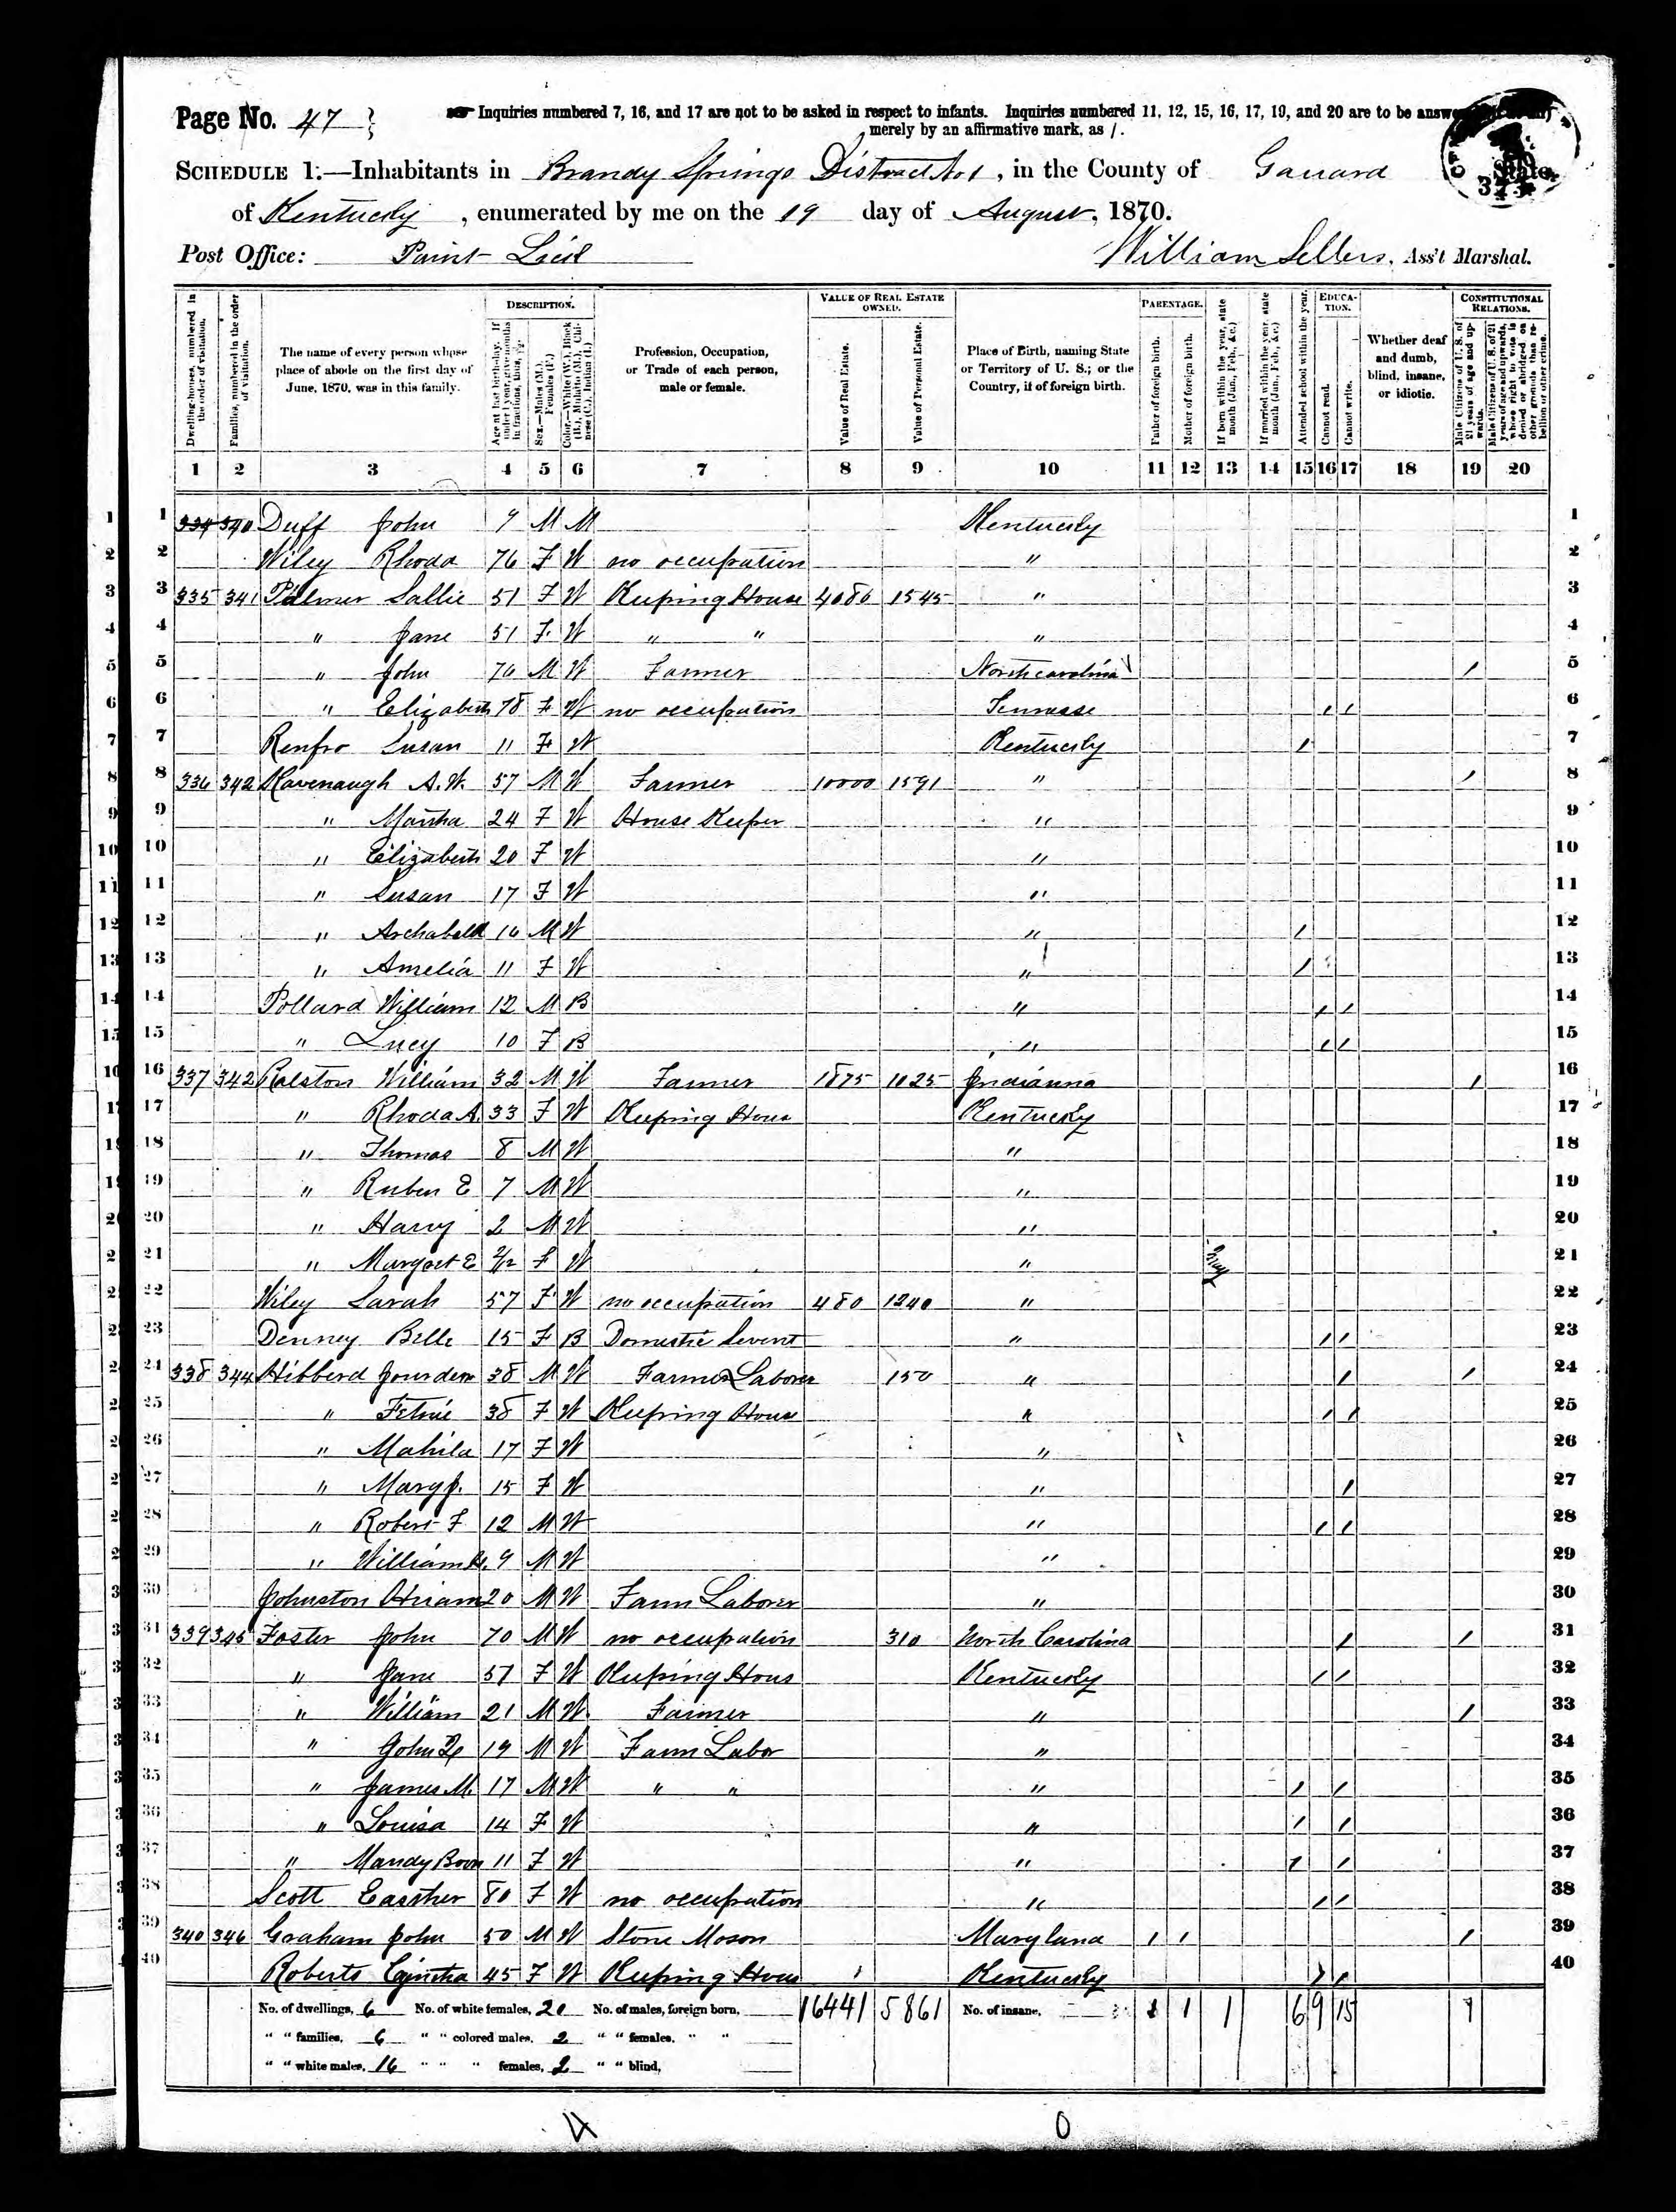 Page No. 47
Inquiries numbered 7, 16, and 17 are not to be asked in respect to infants. Inquiries numbered 11, 12, 15, 16, 17, 19, and 20 are to be
merely by an affirmative mark, as /.
SCHEDULE 1.—Inhabitants in Brandy Springs District No 1, in the County of Garrard
of Kentucky, enumerated by me on the 19 day of August, 1870.
Post Office: Paint Lick
William Sellers, Ass't Marshal.
DESCRIPTION. VALUE OF REAL ESTATE OWNED. PARENTAGE. EDUCATION. CONSTITUTIONAL RELATIONS.
Dwelling-houses, numbered in the order of visitation.
Families, numbered in the order of visitation.
The name of every person whose place of abode on the first day of June, 1870, was in this family.
Age at last birth-day. If under 1 year, give months in fractions, thus,
Sex.—Males (M.), Females (F.)
Color.—White (W.), Black (B.), Mulatto (M.), Chinese (C.), Indian (I.)
Profession, Occupation, or Trade of each person, male or female.
Value of Real Estate.
Value of Personal Estate.
Place of Birth, naming State or Territory of U. S.; or the Country, if of foreign birth.
Father of foreign birth.
Mother of foreign birth.
If born within the year, state month (Jan., Feb., &c.)
If married within the year, state month (Jan., Feb., &c.)
Attended school within the year.
Cannot read.
Cannot write.
Whether deaf and dumb, blind, insane, or idiotic.
Male Citizens of U. S. of 21 years of age and upwards.
Male Citizens of U. S. of 21 years of age and upwards, whose right to vote is denied or abridged on other grounds than rebellion or other crime.
1 2 3 4 5 6 7 8 9 10 11 12 13 14 15 16 17 18 19 20
1 334 340 Duff John 9 M M Kentucky 1
2 Wiley Rhoda 76 F W no occupation " 2
3 335 341 Palmer Sallie 51 F W Keeping House 4080 1545 " 3
4 " Jane 51 F W " " " 4
5 " John 76 M W Farmer North carolina / 5
6 " Elizabeth 78 F W no occupation Tennesse / / 6
7 Renfro Susan 11 F W Kentucky / 7
8 336 342 Kavenaugh A. W. 57 M W Farmer 10000 1591 " / 8
9 " Martha 24 F W House Keeper " 9
10 " Elizabeth 20 F W " 10
11 " Susan 17 F W " 11
12 " Archabald 16 M W " / 12
13 " Amelia 11 F W " / 13
14 Pollard William 12 M B " / / 14
15 " Lucy 10 F B " / / 15
16 337 342 Ralston William 32 M W Farmer 1875 1025 Indianna / 16
17 " Rhoda A. 33 F W Keeping Hous Kentucky 17
18 " Thomas 8 M W " 18
19 " Ruben E 7 M W " 19
20 " Harry 2 M W " 20
21 " Margaet E 2/12 F W " May 21
22 Wiley Sarah 57 F W no occupation 480 1240 " 22
23 Denney Belle 15 F B Domestic Servent " / / 23
24 338 344 Hibberd Jourden 38 M W Farmer Laborer 150 " / / 24
25 " 38 F W Keeping House " / / 25
26 " Mahila 17 F W " 26
27 " Mary J. 15 F W " / 27
28 " Robert F 12 M W " / / 28
29 " William H. 9 M W " 29
30 Johnston Hiram 20 M W Farm Laborer " 30
31 339 345 Foster John 70 M W no occupation 310 North Carolina / / 31
32 " Jane 57 F W Keeping Hous Kentucky / / 32
33 " William 21 M W Farmer " / 33
34 " John 19 M W Farm Labor " 34
35 " James M. 17 M W " " " / / 35
36 " Louisa 14 F W " / / 36
37 " Mandy Boon 11 F W " / / 37
38 Scott Easther 80 F W no occupation " / / 38
39 340 346 Graham John 50 M W Stone Moson Maryland / / / 39
40 Roberts 45 F W Keeping Hous Kentucky / / 40
No. of dwellings, 6 No. of white females, 20 No. of males, foreign born, 16441 5861 No. of insane, 1 1 1 6 9 15 9
" " families, 6 " " colored males, 2 " " females, " "
" " white males, 16 " " " females, 2 " " blind,
4 0